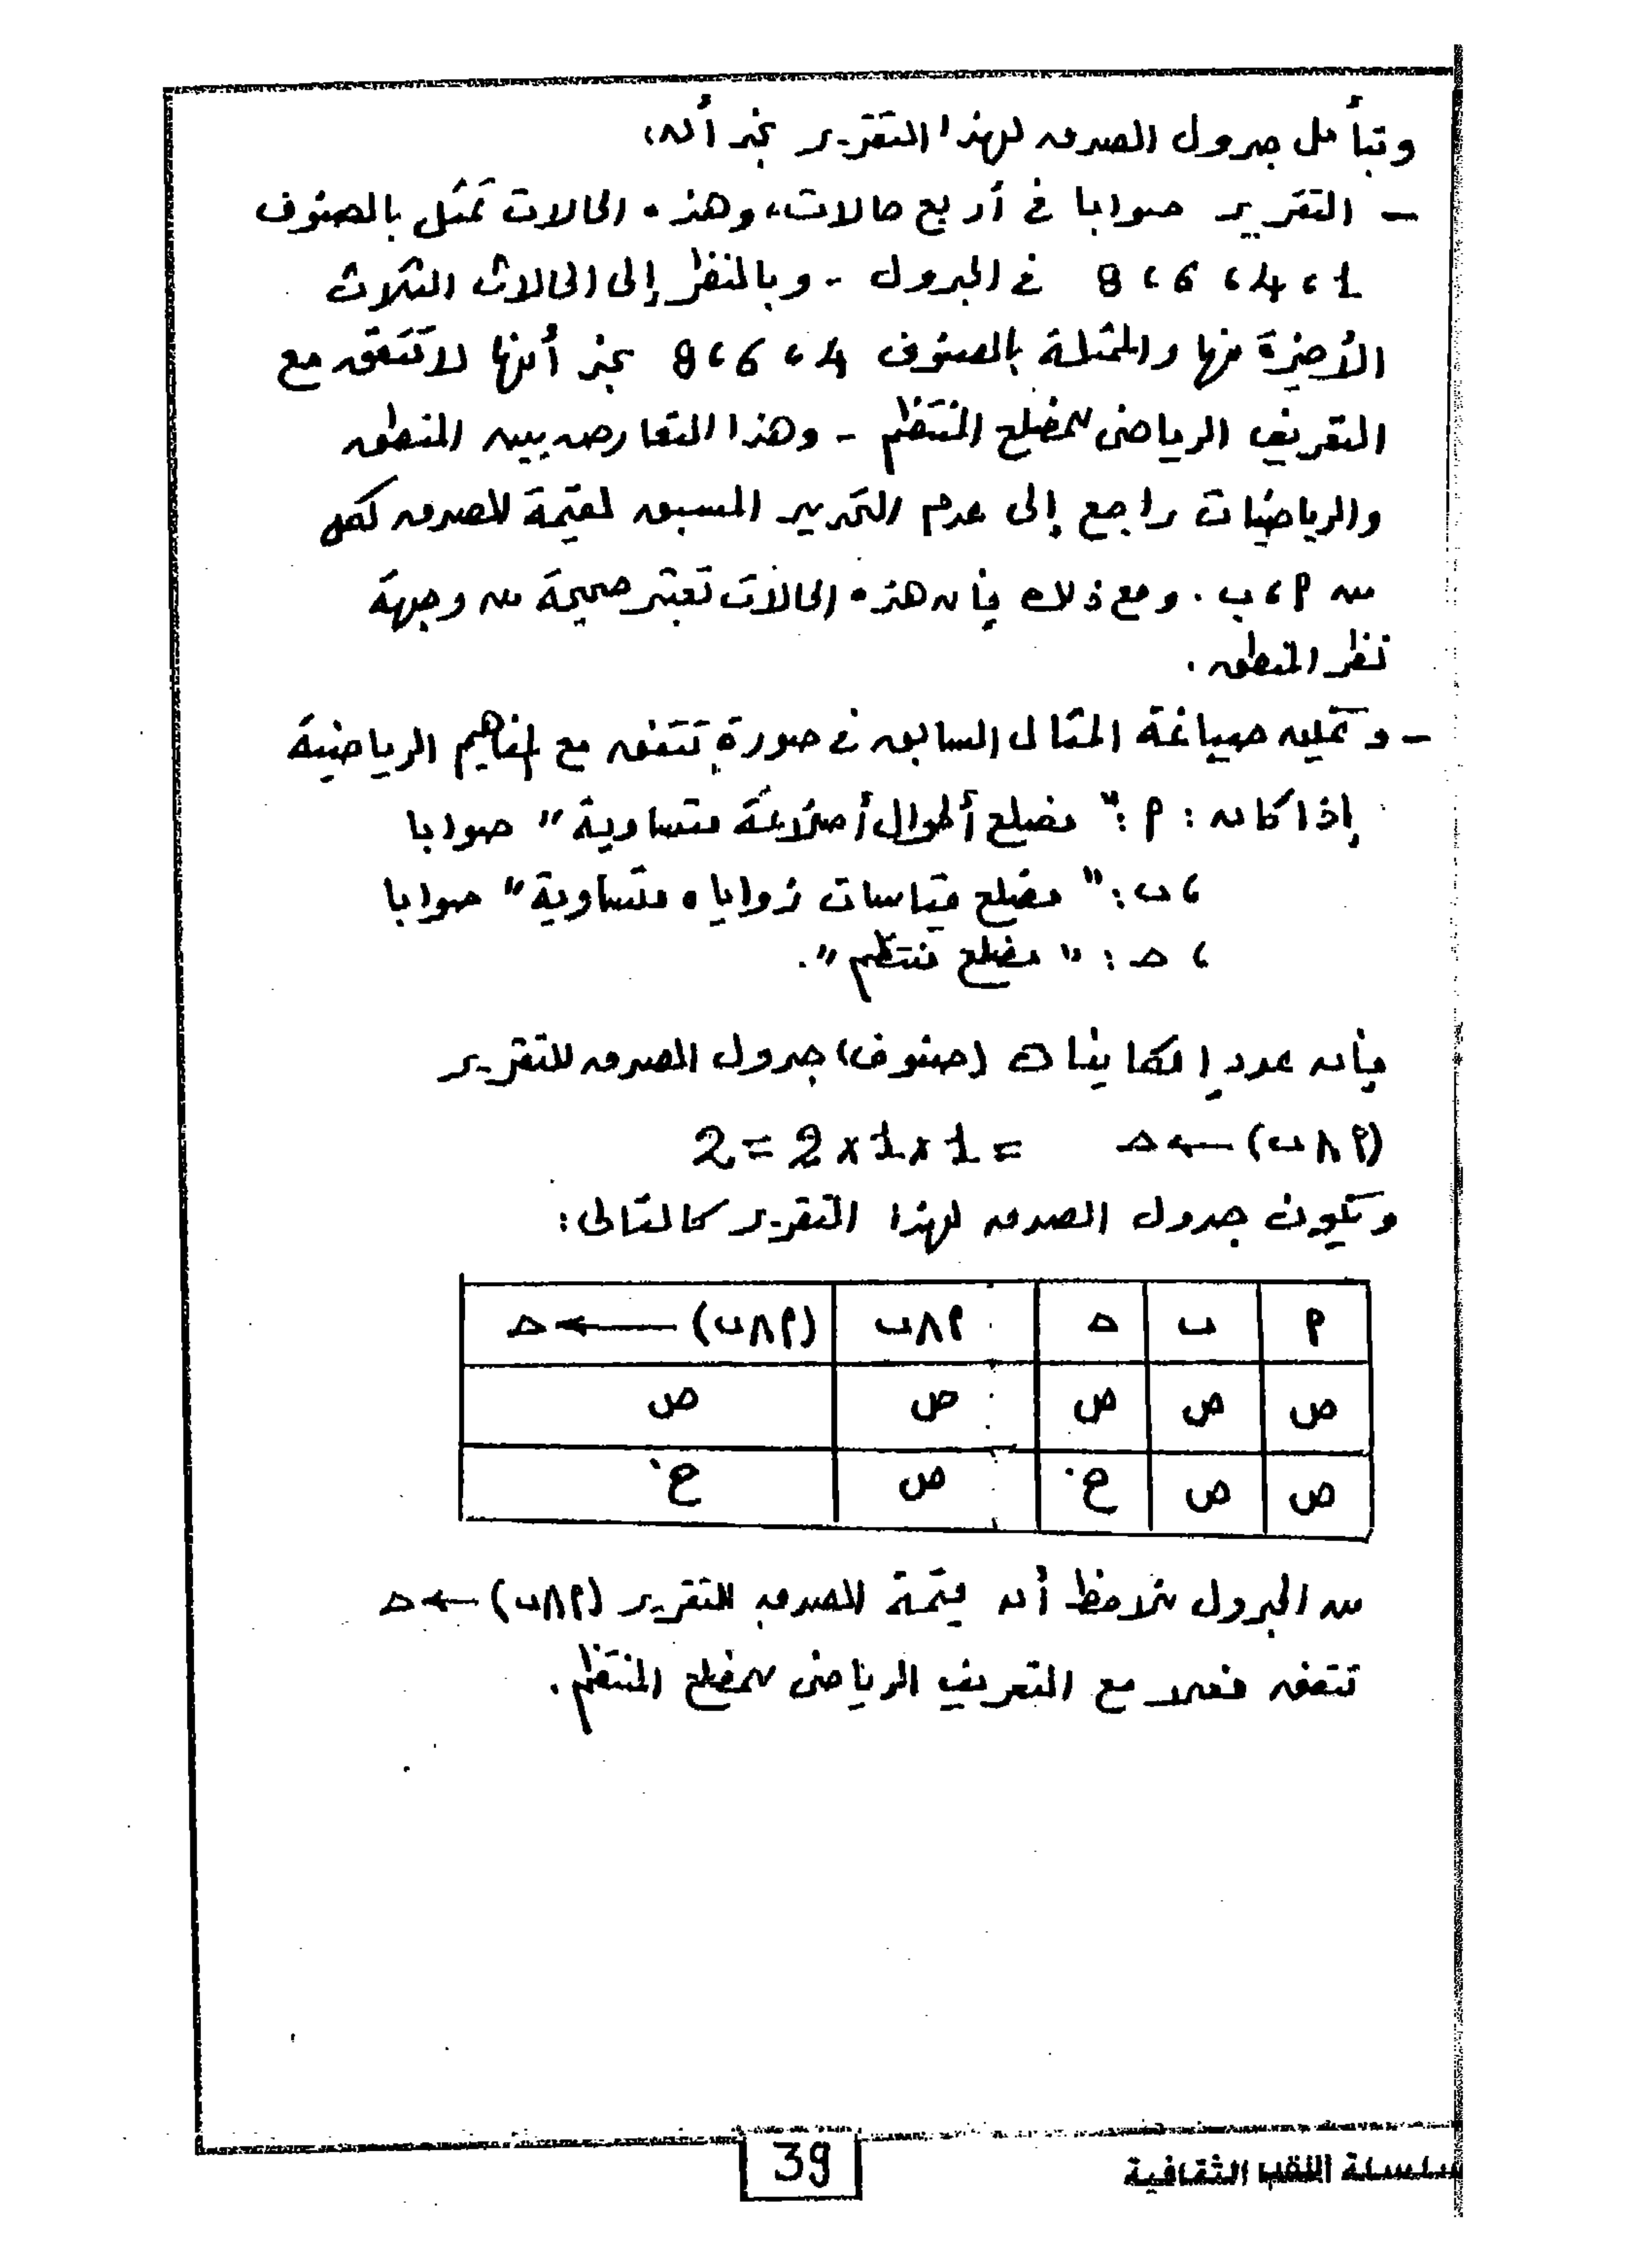 وتبأمل جدول الصدق لهذا التقرير نجد أن:
- التقرير صوابا فى أربع حالات، وهذه الحالات تمثل بالصفوف
1، 4، 6، 8 فى الجدول - وبالنظر إلى الحالات الثلاث
الأخيرة منها والممثلة بالصفوف 4، 6، 8 نجد أنها لا تتفق مع
التعريف الرياضى للمضلع المنتظم - وهذا التعارض بين المنطق
والرياضيات راجع إلى عدم التحديد المسبق لقيمة الصدق لكل
من م، ب. ومع ذلك فإن هذه الحالات تعتبر صحيحة من وجهة
نظر المنطق.
- ويمكن صياغة المثال السابق فى صورة تتفق مع المفاهيم الرياضية
إذا كان: م: " مضلع أطوال أضلاعه متساوية " صوابا
، ب: " مضلع قياسات زواياه متساوية " صوابا
، حـ: " مضلع منتظم ".
فإن عدد إمكانيات (صفوف) جدول الصدق للتقرير
(م ∧ ب) ← حـ = 1 × 1 × 2 = 2
ويكون جدول الصدق لهذا التقرير كالتالى:
م ب حـ م ∧ ب (م ∧ ب) ← حـ
ص ص ص ص ص
ص ص خ ص خ
من الجدول نلاحظ أن قيمة الصدق للتقرير (م ∧ ب) ← حـ
تتفق فعلا مع التعريف الرياضى للمضلع المنتظم.
39
سلسلة الثقافية